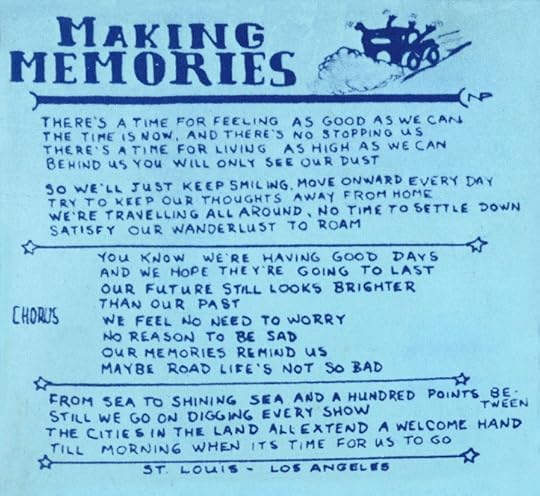 MAKING
MEMORIES
THERE'S A TIME FOR FEELING AS GOOD AS WE CAN
THE TIME IS NOW, AND THERE'S NO STOPPING US
THERE'S A TIME FOR LIVING AS HIGH AS WE CAN
BEHIND US YOU WILL ONLY SEE OUR DUST
SO WE'LL JUST KEEP SMILING, MOVE ONWARD EVERY DAY
TRY TO KEEP OUR THOUGHTS AWAY FROM HOME
WE'RE TRAVELLING ALL AROUND, NO TIME TO SETTLE DOWN
SATISFY OUR WANDERLUST TO ROAM
YOU KNOW WE'RE HAVING GOOD DAYS
AND WE HOPE THEY'RE GOING TO LAST
OUR FUTURE STILL LOOKS BRIGHTER
THAN OUR PAST
CHORUS WE FEEL NO NEED TO WORRY
NO REASON TO BE SAD
OUR MEMORIES REMIND US
MAYBE ROAD LIFE'S NOT SO BAD
FROM SEA TO SHINING SEA AND A HUNDRED POINTS BE-
TWEEN
STILL WE GO ON DIGGING EVERY SHOW
THE CITIES IN THE LAND ALL EXTEND A WELCOME HAND
TILL MORNING WHEN ITS TIME FOR US TO GO
ST. LOUIS - LOS ANGELES